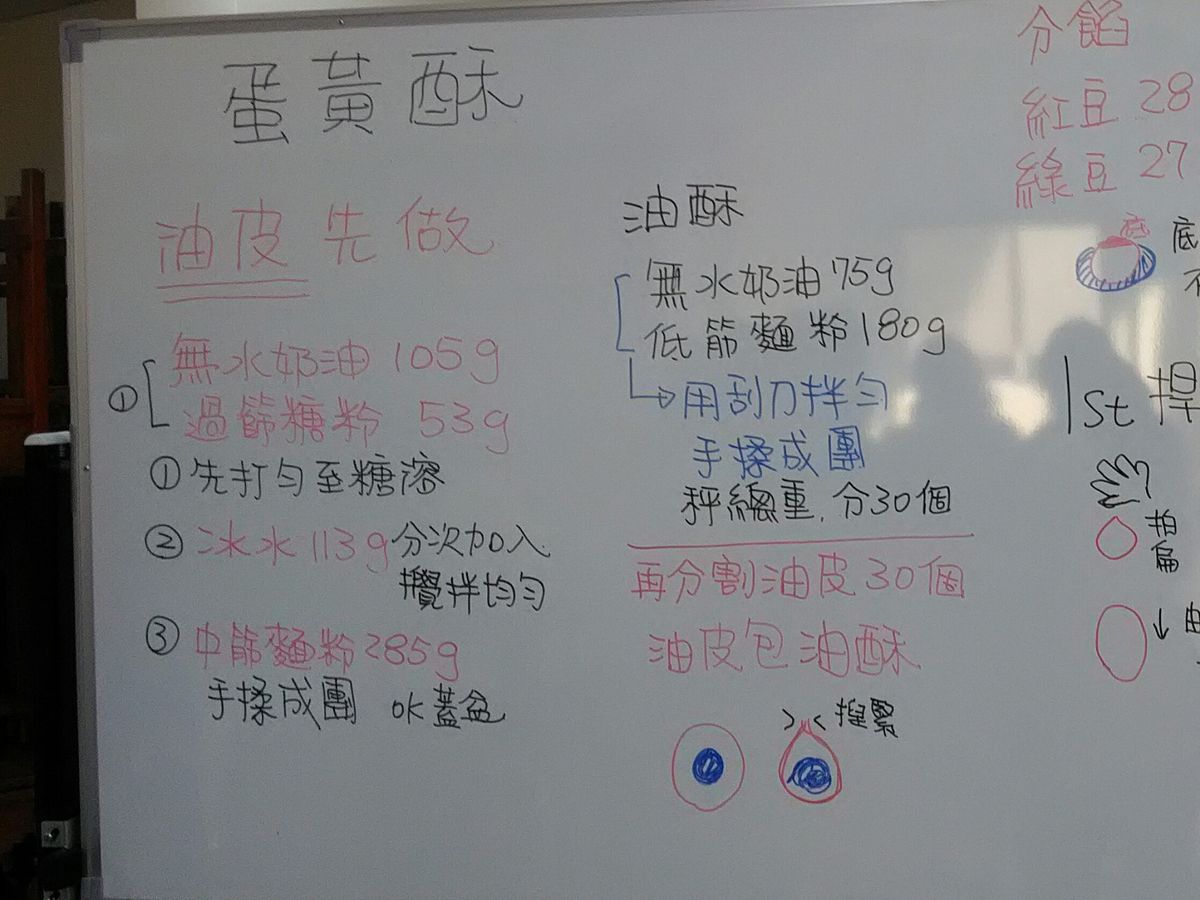 蛋黃酥
油皮先做
① 無水奶油 105g
過篩糖粉 53g
①先打勻至糖溶
② 冰水113g分次加入
攪拌均勻
③ 中筋麵粉285g
手揉成團 OK蓋盆
油酥
無水奶油75g
低筋麵粉180g
用刮刀拌勻
手揉成團
秤總重,分30個
再分割油皮30個
油皮包油酥
捏緊
分餡
紅豆 28
綠豆 27
底 底
不
1st 捏
拍
扁
↓